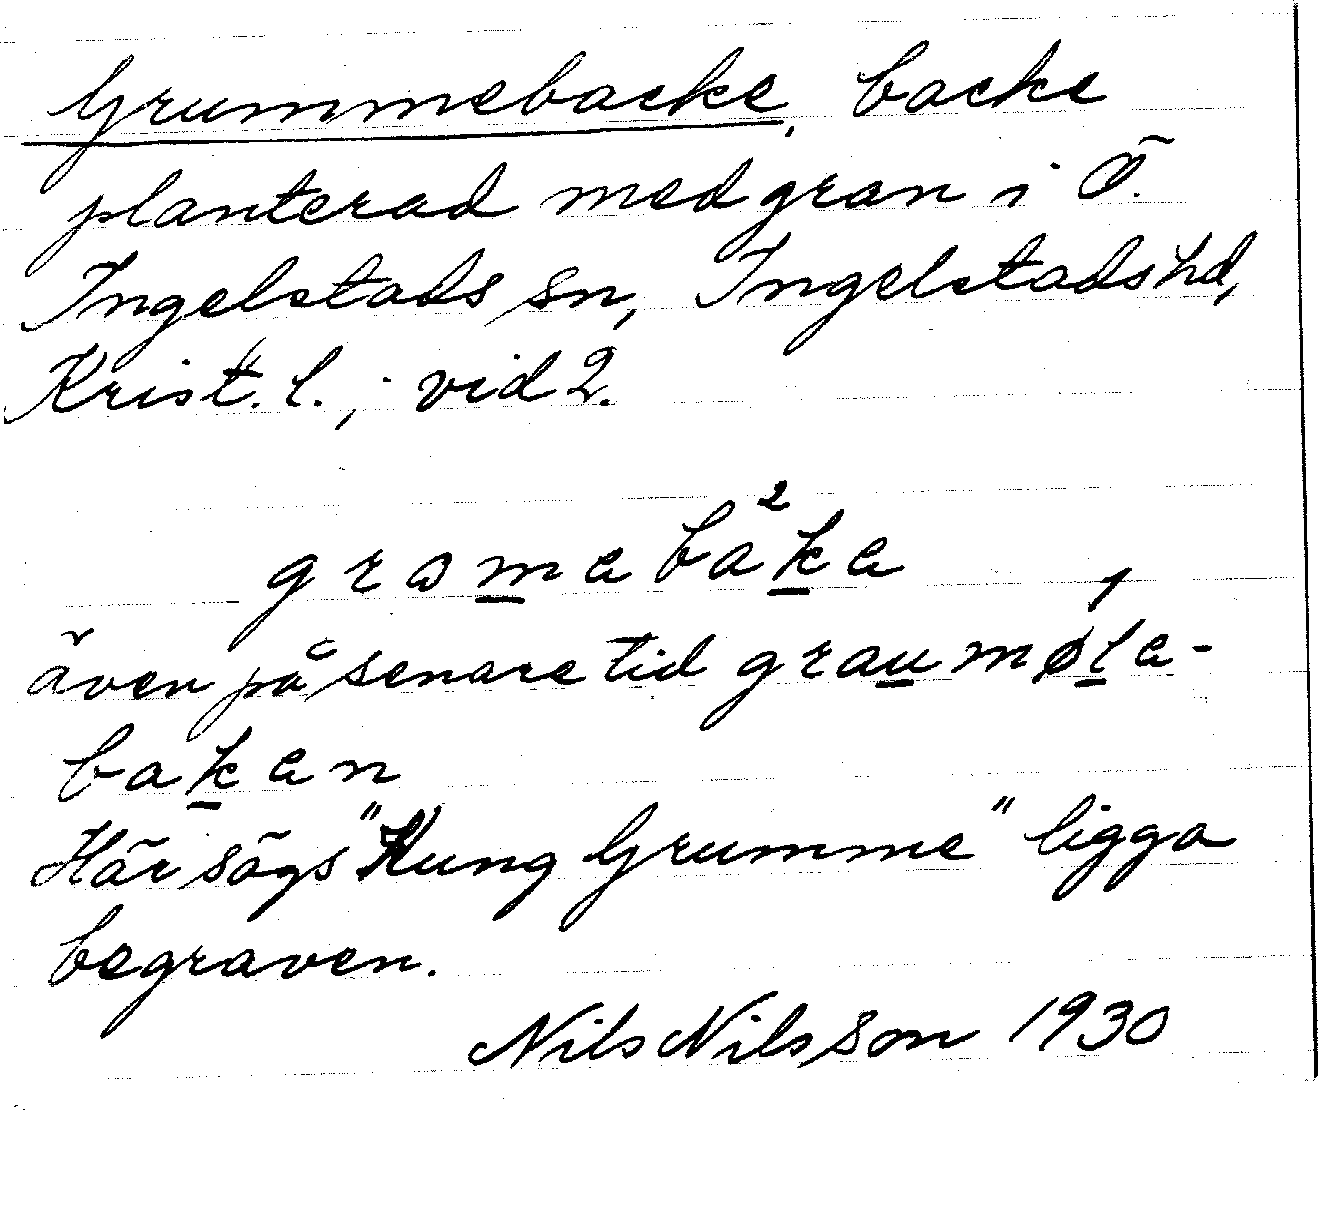 Grummebacke, backe
planterad med gran i Ö.
Ingelstads sn, Ingelstads hd,
Krist. l.; vid 2.
grameba²ka
även på senare tid graumø¹le-
baken
Här sägs "Kung Grumme" ligga
begraven.
Nils Nilsson 1930